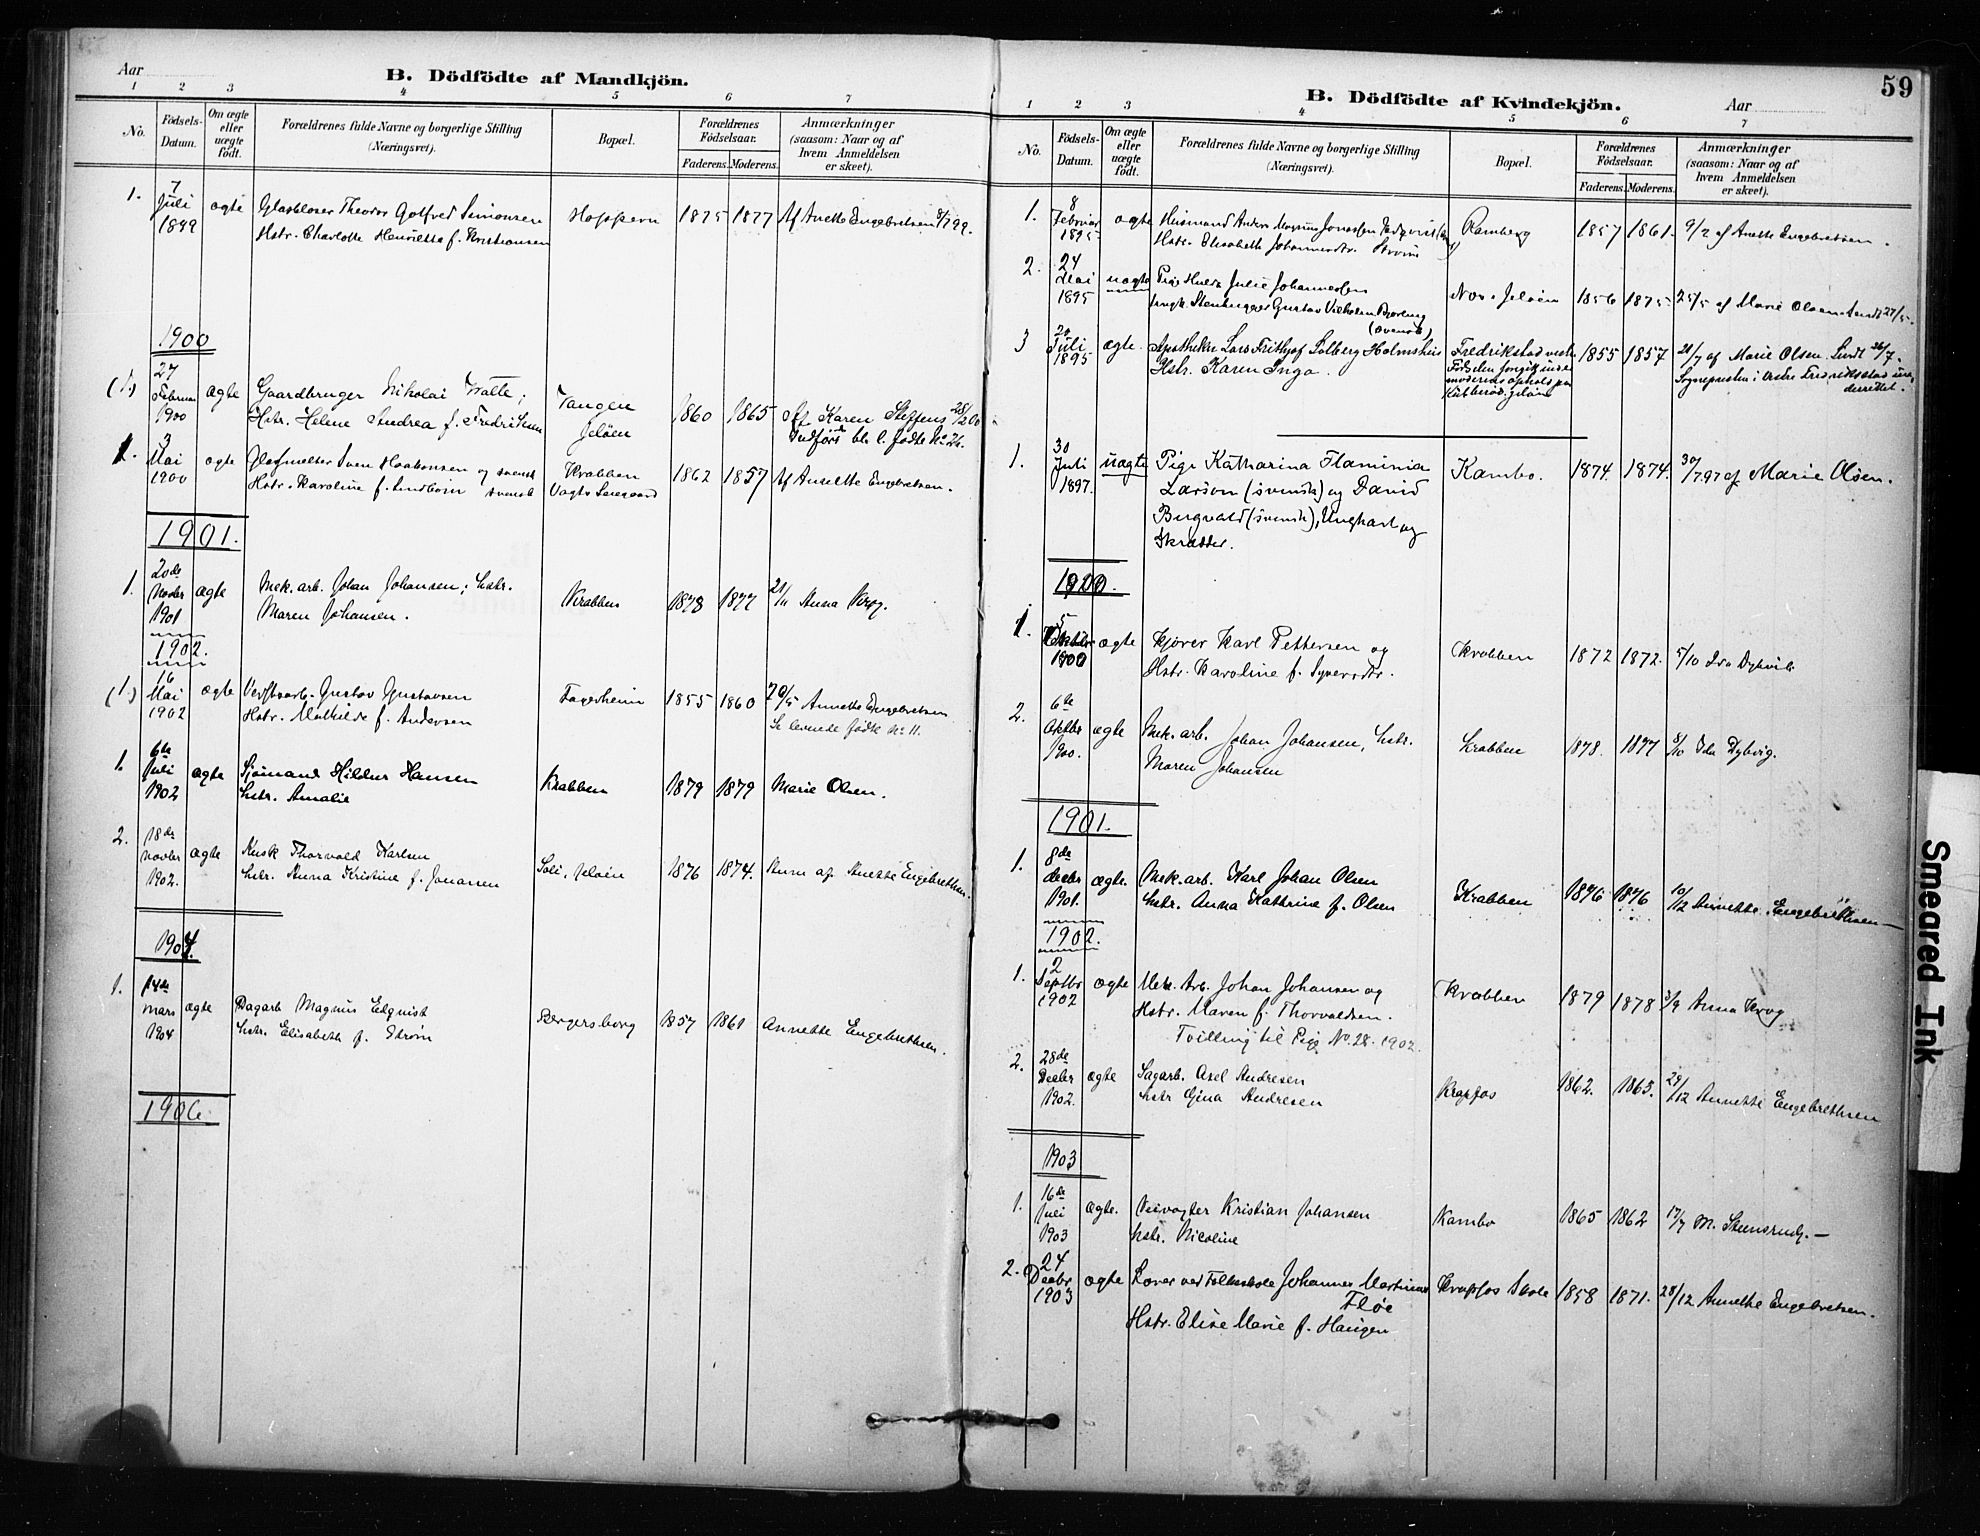 Aar
B. Dödfödte af Mandkjön.
1 2 3 4 5 6 7
No.
Födsels-Datum.
Om ægte eller uægte födt.
Forældrenes fulde Navne og borgerlige Stilling (Næringsvei).
Bopæl.
Forældrenes Födselsaar.
Faderens. Moderens.
Anmærkninger (saasom: Naar og af hvem Anmeldelsen er skeet).
1. 7 Juli 1899 ægte Glasblæser Theodor Gotfred Simonsen Hoppern 1875 1877 Af Anette Engebretsen 8/7 99.
Hstr. Charlotte Henriette f. Kristiansen
1900
(1.) 27 Februar 1900 ægte Gaardbruger Nikolai Tratte; Tangen Jeløen 1860 1865 Af Karen Steffens 28/2 00
Hstr. Helene Andrea f. Fredriksen Indført bl. l. fødte No 24.
1. 3 Mai 1900 ægte Glasmelter Sven Haakonsen og svensk Krabben 1862 1857 Af Anette Engebretsen.
Hstr. Karoline f. Lindblom svensk
1901.
1. 20de Novbr 1901 ægte Mek. arb. Johan Johansen; hstr. Krabben 1878 1877 21/11 Anna Krog.
Maren Johansen.
1902.
(1.) 16 Mai 1902 ægte Verftsarb. Gustav Gustavsen Fagerheim 1855 1860 20/5 Annette Engebretsen
Hstr. Mathilde f. Andersen Se levende fødte No 11.
1. 6te Juli 1902 ægte Sjømand Hildur Hansen Krabben 1879 1879 Marie Olsen.
hstr. Amalie
2. 18de Novbr 1902. ægte Kusk Thorvald Karlsen Soli, Jeløen 1876 1874. Anm af Anette Engebrethsen.
hstr. Anna Kristine f. Johansen
1904.
1. 14de mars 1904 ægte Dagarb Magnus Edquist Bergersborg 1857 1861 Annette Engebrethsen.
hstr. Elisabeth f. Strøm
1906.
59
B. Dödfödte af Kvindekjön.
Aar
1 2 3 4 5 6 7
No.
Födsels-Datum.
Om ægte eller uægte födt.
Forældrenes fulde Navne og borgerlige Stilling (Næringsvei).
Bopæl.
Forældrenes Födselsaar.
Faderens. Moderens.
Anmærkninger (saasom: Naar og af hvem Anmeldelsen er skeet).
1. 8 Februar 1895 ægte Husmand Anders Magnus Jonassen Edqvist Ramberg 1857 1861. 9/2 af Anette Engebretsen.
Hstr. Elisabeth Johannesdtr. Strøm
2. 24 Mai 1895 uægte Pige Hulda Julie Johannesen Nore Jeløen 1856 1875. 25/5 af Marie Olsen. Sendt 27/5.
ungk. Stenhugger Gustav Vilhelm Bjorling (svensk)
3 20 Juli 1895 ægte. Apotheker Lars Frithjof Solberg Holmshus Fredrikstad 1855 1857 21/7 af Marie Olsen. Sendt 26/7.
Hstr. Karen Inga. Fødselen foregik under moderens ophold paa Kubberød. Jeløen Sognepresten i Vestre Fredrikstad underrettet.
1. 30 Juli 1897. uægte Pige Katharina Flaminia Kambo. 1874. 1874. 30/7.97 af Marie Olsen.
Larson (svensk) og David
Bugvald (svensk), Ungkarl og
Skrædder.
1900.
1. 5 Oktbr 1900 ægte Kjører Karl Pettersen og Krabben 1872 1872. 5/10 Ida Dybvik
Hstr. Karoline f. Syversdtr.
2. 6te Oktbr 1900. ægte Mek. arb. Johan Johansen, hstr. Krabben 1878. 1877 8/10 Ida Dybvig.
Maren Johansen
1901.
1. 8de decbr 1901. ægte. Mek. arb. Karl Johan Olsen Krabben 1876 1876 10/12 Annette Engebrethsen
hstr. Anna Kathrine f. Olsen
1902.
1. 2 Septbr 1902 ægte Mek. Arb. Johan Johansen og Krabben 1879 1878 3/9 Anna Krog
Hstr. Maren f. Thorvaldsen.
Tvilling til Pige No. 28. 1902.
2. 28de Decbr 1902. ægte Sagarb. Axel Andresen Krapfos 1862. 1863. 29/12 Annette Engebrethsen
hstr Gina Andresen
1903
1. 16de Juli 1903 ægte. Veivogter Kristian Johansen Kambo 1865 1862 17/7 M. Stensrud.
hstr. Nicoline
2. 24 Decbr 1903 ægte Lærer ved Folkeskole Johannes Martinus Krapfos Skole 1858 1871. 28/12 Annethe Engebretsen.
Fløe
Hstr. Elise Marie f. Haugen
Smeared Ink